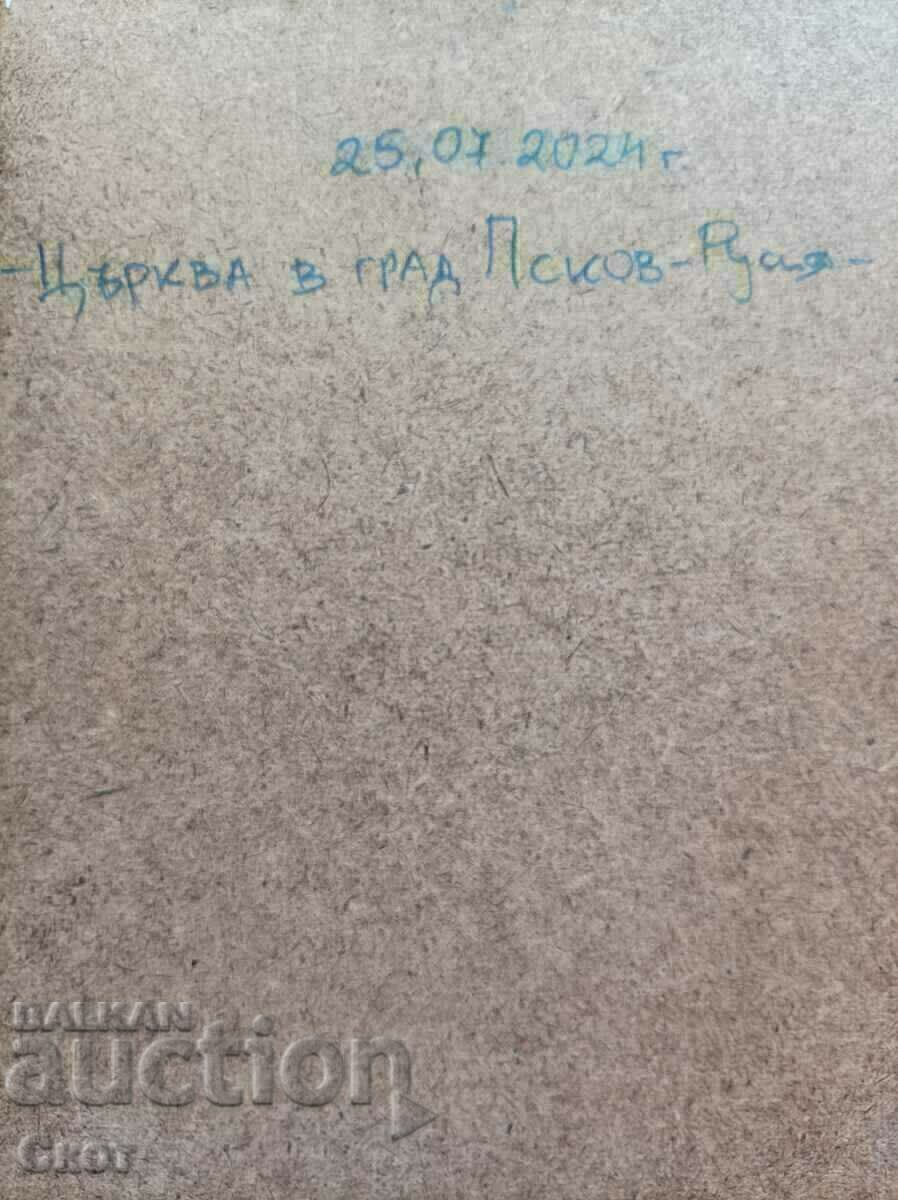 25.07.2024 г.
-Църква в град Псков-Русия-
BALKAN
auction
Скот